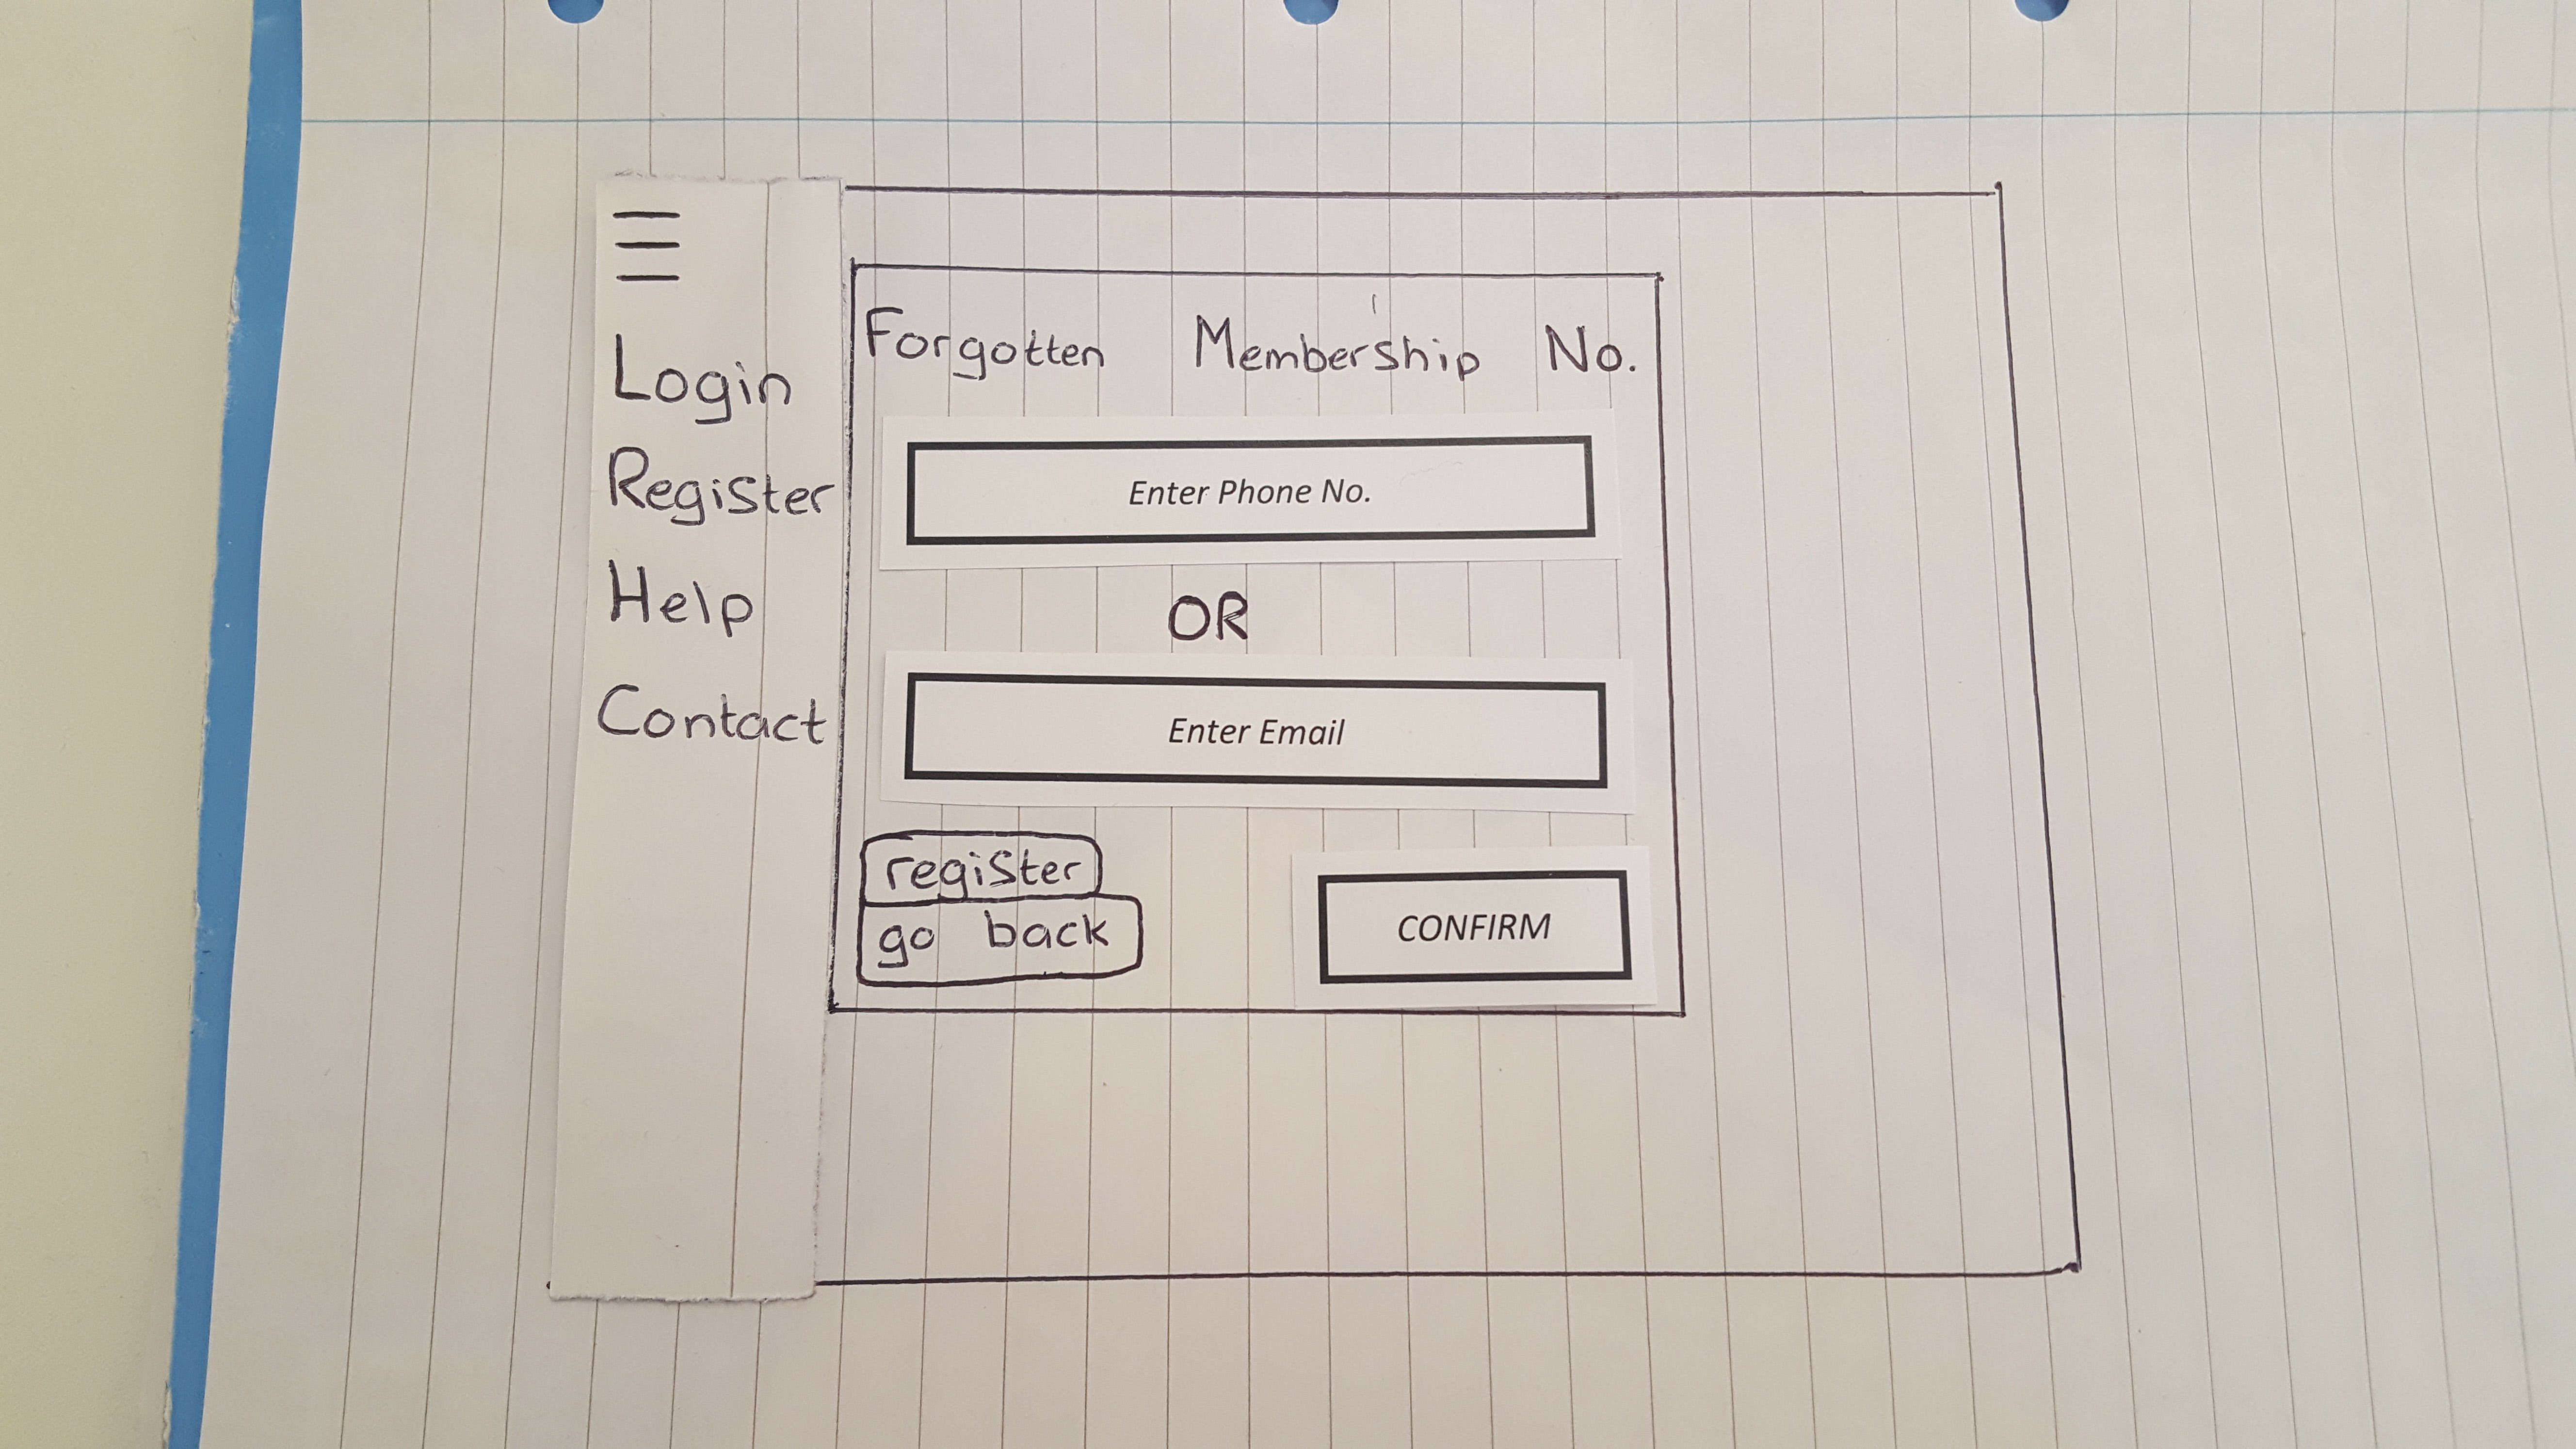 Login
Register
Help
Contact
Forgotten Membership No.
Enter Phone No.
OR
Enter Email
register
go back
CONFIRM